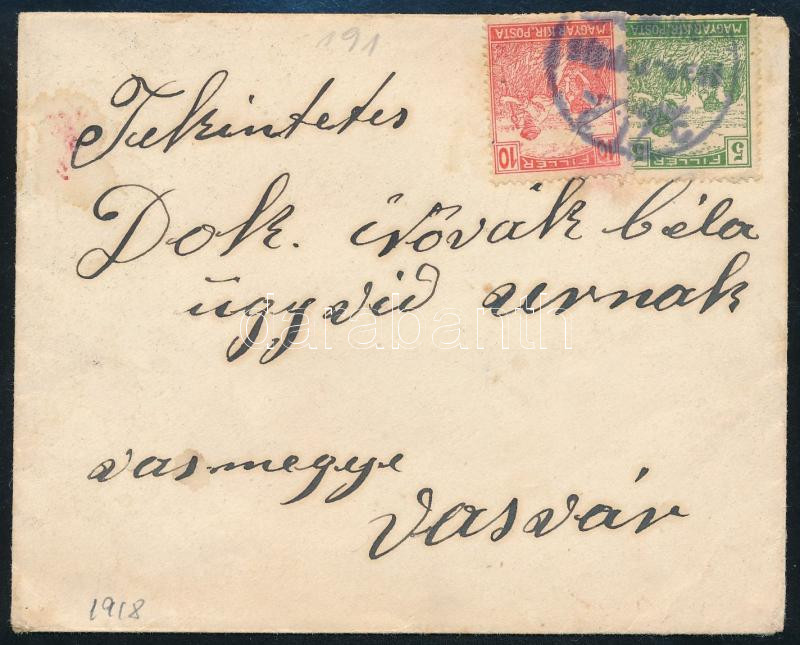 191
MAGYAR KIR. POSTA
10 FILLÉR 10
MAGYAR KIR. POSTA
5 FILLÉR 5
Tekintetes
Dok. Növák béla
ügyvid urnak
darabanth
vasmegye
Vasvár
1918